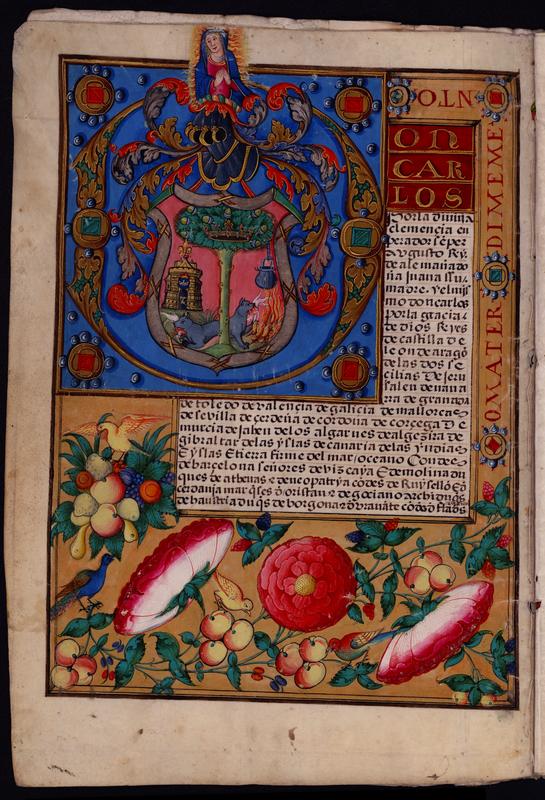 O.LN
ON
CAR
LOS
Por la divina
clemencia en
perador sēper
augusto Rey
de alemania do
ña Juana su
madre. y el mis
mo don carlos
por la gracia
de dios Reyes
de castilla de
leon de aragō
de las dos se
cilias De Jeru
salen de navar
ra de granada
de toledo de valencia de galicia de mallorcas
de sevilla de cerdeña de cordova de corcega De
murcia de Jaben de los algarves de algezira de
gibraltar de las yslas de canaria de las yndias
E yslas E tierra firme del mar oceano Condes
de barcelona señores de vizcaya E de molina du
ques de athenas E de neopatrya cōdes de Ruysellō E de
cerdania marqses de oristan E de gociano archiduqs
de baustria duqs de borgona
O.MATER DI MEMEM